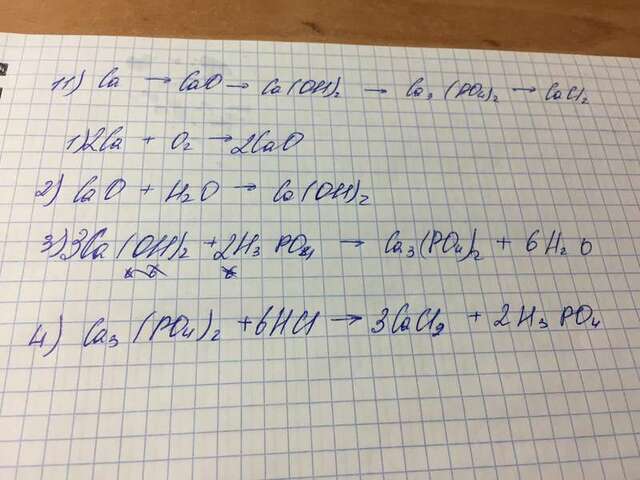 11) Ca → CaO → Ca(OH)2 → Ca3(PO4)2 → CaCl2
1) 2Ca + O2 → 2CaO
2) CaO + H2O → Ca(OH)2
3) 3Ca(OH)2 + 2H3PO4 → Ca3(PO4)2 + 6H2O
4) Ca3(PO4)2 + 6HCl → 3CaCl2 + 2H3PO4